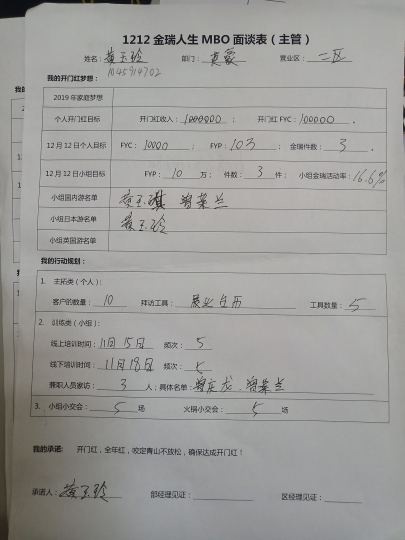 1212 金瑞人生 MBO 面谈表（主管）
姓名：黄玉玲 部门：英豪 营业区：二区
1045914702
我的开门红梦想：
2019 年家庭梦想
个人开门红目标 开门红收入：1000000 开门红 FYC：100000.
12 月 12 日个人目标 FYC：10000 FYP：10万 金瑞件数：3.
12 月 12 日小组目标 FYP：10 万； 件数：3 件；小组金瑞活动率：16.6%
小组国内游名单 黄玉琪 曾菜兰
小组日本游名单 黄玉玲
小组英国游名单
我的行动规划：
1. 主拓类（个人）：
客户的数量：10 拜访工具：展业台历 工具数量：5
2. 训练类（小组）：
线上培训时间：11月15日 频次：5
线下培训时间：11月18日 频次：5
兼职人员家访：3 人；具体名单：曾庆龙、曾菜兰
3. 小组小交会：5 场 火锅小交会：5 场
我的承诺： 开门红，全年红，咬定青山不放松，确保达成开门红！
承诺人：黄玉玲 部经理见证： 区经理见证：